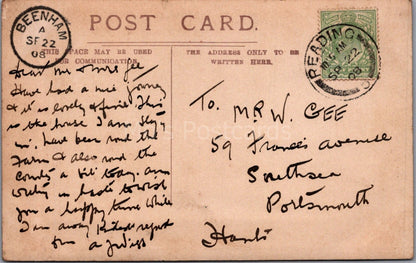 BEENHAM
A
SP 22
08
POST CARD.
THIS SPACE MAY BE USED
FOR COMMUNICATION.
THE ADDRESS ONLY TO BE
WRITTEN HERE.
READING
AM
SP 22
08
Dear Mr Gee
Have had a nice journey
& it is lovely & fine. This
is the house I am stay
in. have been round the
Farm & also round the
County a bit today. am
writing in haste to wish
you a happy time while
I am away Kindest regards
from
To. Mr. W. GEE
59 Francis Avenue
Southsea
Portsmouth
Hants
Postcards